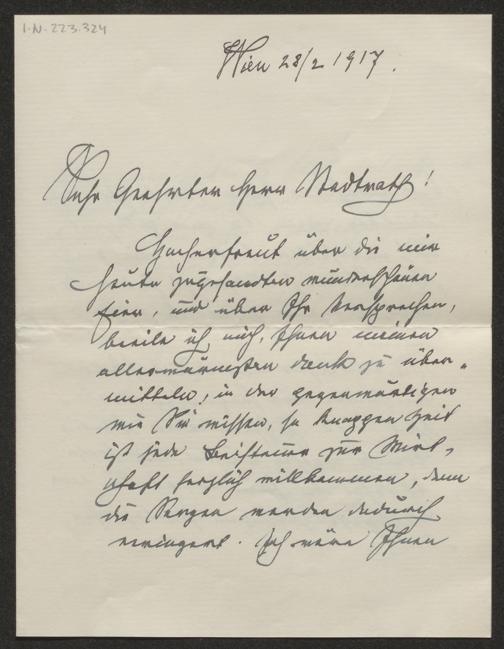 I.N. 223.324
Wien 28/2 1917.
Sehr Geehrter Herr Stadtrath!
Hocherfreut über die mir
heute zugesandten wunderschönen
Eier, und über Ihr Versprechen,
beeile ich mich, Ihnen meinen
allerwärmsten Dank zu über-
mitteln, in der gegenwärtigen
wie Sie wissen, so knappen Zeit
ist jede Beisteuer zur Wirt-
schaft herzlich willkommen, denn
die Sorgen werden dadurch
veringert. Ich wäre Ihnen